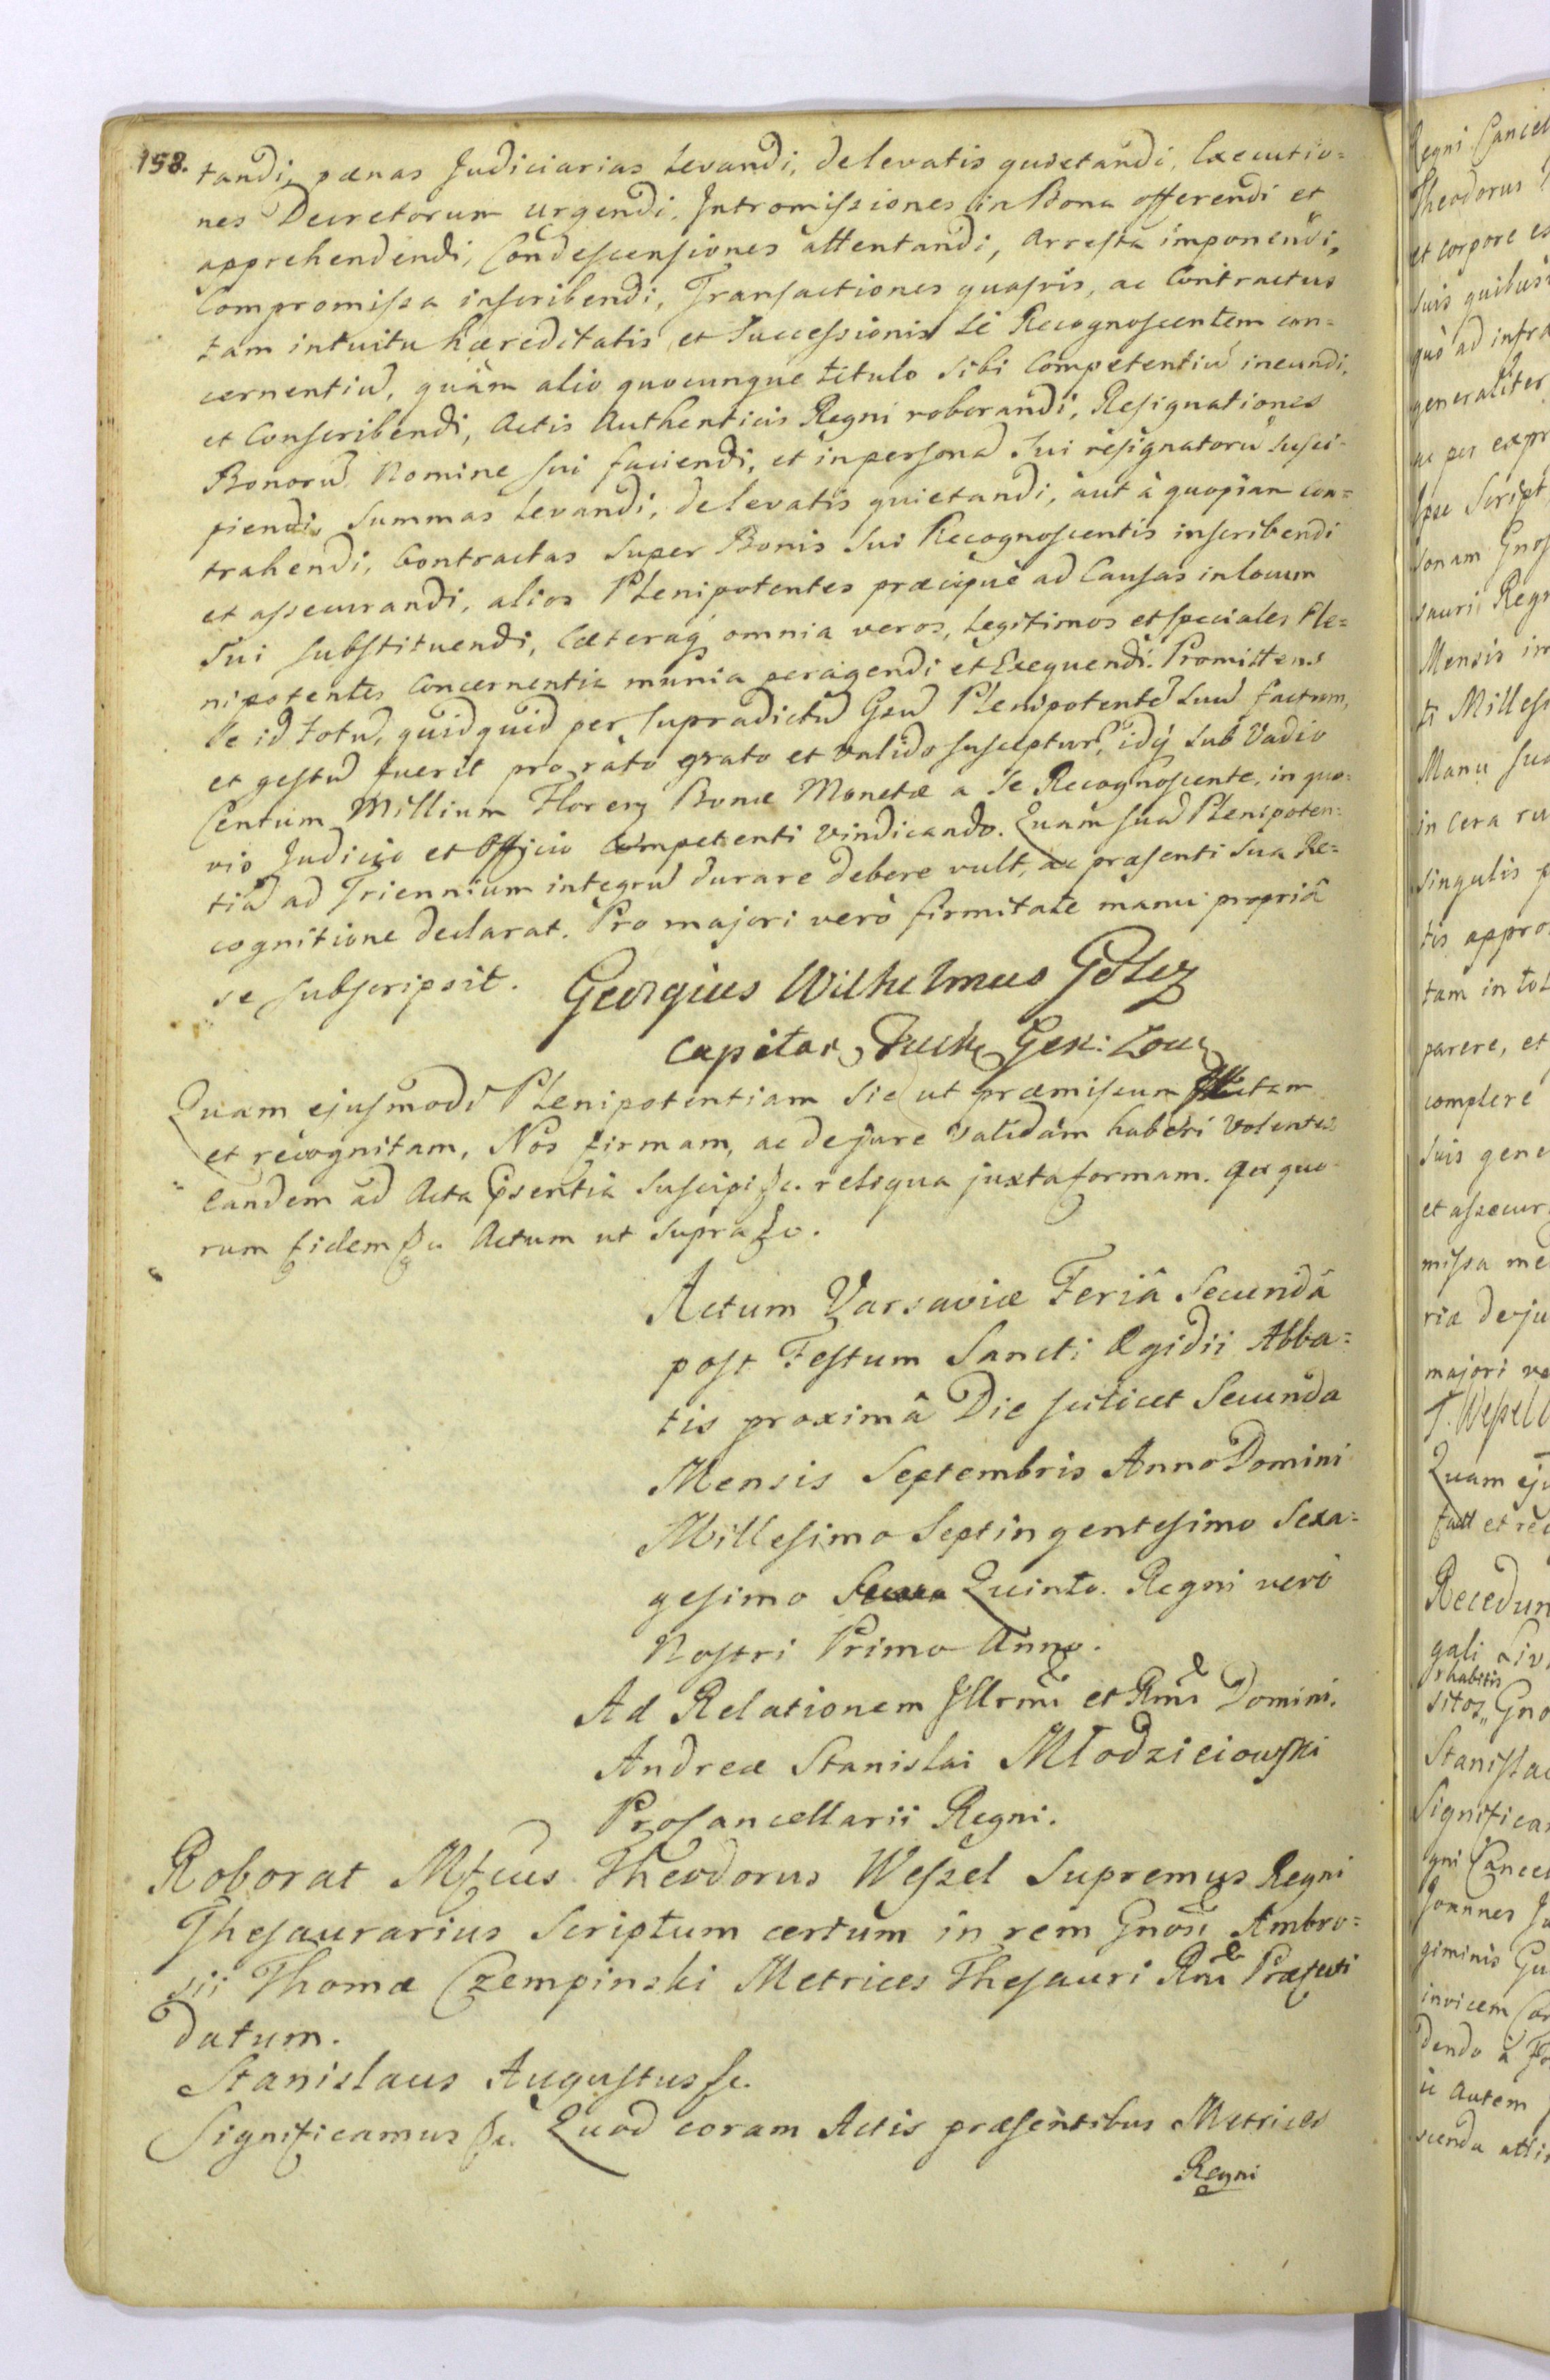 158.
tandi, pænas Judiciarias Levandi, delevatis quietandi, Executio=
nes Decretorum urgendi, Intromissiones in Bona offerendi et
apprehendendi, Condescensiones attentandi, Arresta imponendi,
Compromissa inscribendi, Transactiones quasvis, ac Contractus
tam intuitu hæreditatis et Successionis Se Recognoscentem con=
cernentiũ, quàm alio quocunque titulo Sibi Competentiũ ineundi,
et Conscribendi, Actis Authenticis Regni roborandi, Resignationes
Bonorũ Nomine sui faciendi, et in personã Sui resignatorũ susci=
piendi, Summas Levandi, delevatis quietandi, aut à quopiam con=
trahendi, Contractas Super Bonis Sui Recognoscentis inscribendi
et assecurandi, alios Plenipotentes præcipuè ad Causas in locum
Sui substituendi, Cæteraq omnia veros, Legitimos et speciales Ple=
nipotentes Concernentia munia peragendi et Exequendi. Promittens
Se id totũ, quidquid per supradictũ Gsũ Plenipotentẽ Suũ factum,
et gestũ fuerit pro rato grato et valido suscepturũ, idq Sub Vadio
Centum Millium Floren Bonæ Monetæ a Se Recognoscente, in quo=
vis Judicio et Officio Competenti vindicando. Quam suã Plenipoten=
tiã ad Triennium integrũ durare debere vult, ac præsenti Sua Re=
cognitione declarat. Pro majori verò firmitate manu propriâ
se subscripsit.
Georgius Wilhelmus Goltz
Capitar Tuch Gen:
Quam ejusmodi Plenipotentiam Sic ut præmissum
et recognitam, Nos firmam, ac de jure validam haberi volentes
Eandem ad Acta psentia Suscipi &c. reliqua juxta formam. In quo=
rum fidem &c Actum ut Supra &c.
Actum Varsaviæ Feriâ Secundâ
post Festum Sancti Ægidii Abba=
tis proximâ Die scilicet Secunda
Mensis Septembris Anno Domini
Millesimo Septingentesimo Sexa=
gesimo Quinto. Regni verò
Nostri Primo Anno.
Ad Relationem Jllrmi et Rmi Domini.
Andreæ Stanislai Młodzieiowski
Procancellarii Regni.
Roborat Mfcus Theodorus Wessel Supremus Regni
Thesaurarius Scriptum certum in rem Gnosi Ambro=
sii Thomæ Czempinski Metrices Thesauri Rni Præfecti
datum.
Stanislaus Augustus &c.
Significamus &c. Quod coram Actis præsentibus Metrices
Regni